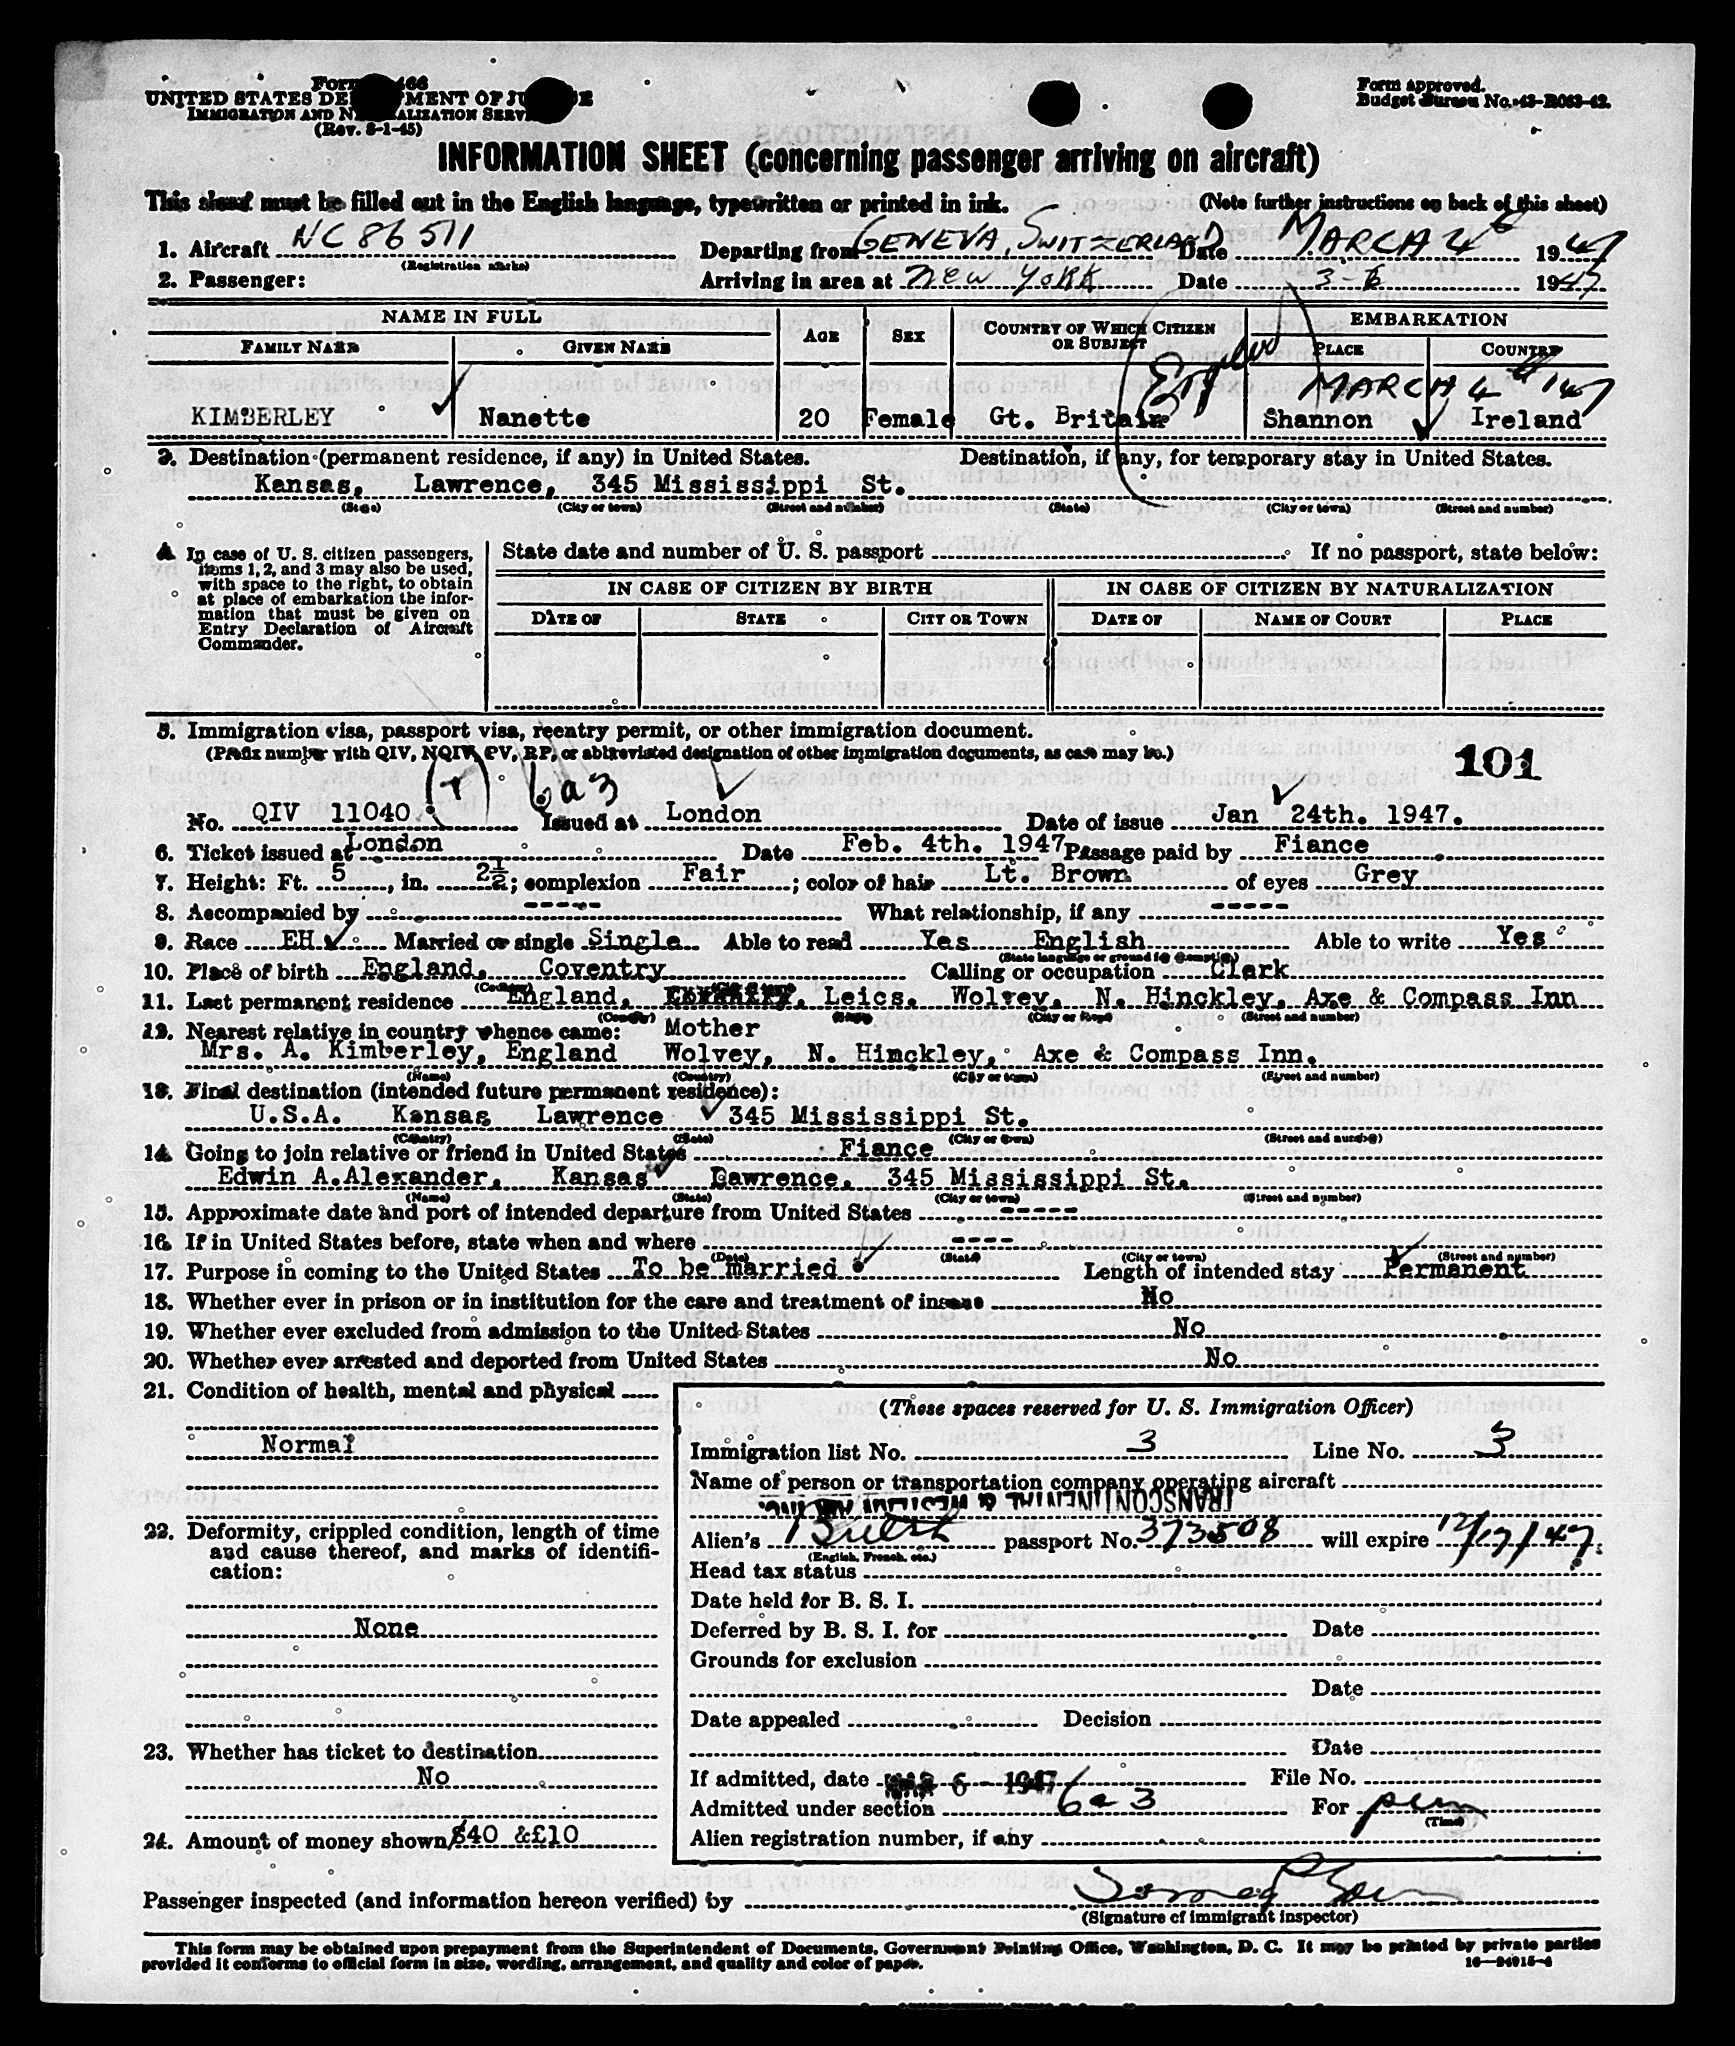 Form 466
UNITED STATES DEPARTMENT OF JUSTICE
IMMIGRATION AND NATURALIZATION SERVICE
(Rev. 8-1-45)
Form approved.
Budget Bureau No. 43-R063-42.
INFORMATION SHEET (concerning passenger arriving on aircraft)
This sheet must be filled out in the English language, typewritten or printed in ink. (Note further instructions on back of this sheet)
1. Aircraft NC 86511 Departing from GENEVA, SWITZERLAND Date MARCH 4th 1947
(Registration marks)
2. Passenger: Arriving in area at NEW YORK Date 3-6 1947
NAME IN FULL AGE SEX COUNTRY OF WHICH CITIZEN OR SUBJECT EMBARKATION
FAMILY NAME GIVEN NAME PLACE COUNTRY
MARCH 4th 1947
KIMBERLEY Nanette 20 Female Gt. Britain Shannon Ireland
3. Destination (permanent residence, if any) in United States. Destination, if any, for temporary stay in United States.
Kansas, Lawrence, 345 Mississippi St.
(State) (City or town) (Street and number) (State) (City or town) (Street and number)
4. In case of U. S. citizen passengers, items 1, 2, and 3 may also be used, with space to the right, to obtain at place of embarkation the information that must be given on Entry Declaration of Aircraft Commander.
State date and number of U. S. passport If no passport, state below:
IN CASE OF CITIZEN BY BIRTH IN CASE OF CITIZEN BY NATURALIZATION
DATE OF STATE CITY OR TOWN DATE OF NAME OF COURT PLACE
5. Immigration visa, passport visa, reentry permit, or other immigration document.
(Prefix number with QIV, NQIV, PV, RP, or abbreviated designation of other immigration documents, as case may be.)
101
6a3
No. QIV 11040 Issued at London Date of issue Jan 24th. 1947.
6. Ticket issued at London Date Feb. 4th. 1947 Passage paid by Fiance
7. Height: Ft. 5, in. 2½; complexion Fair; color of hair Lt. Brown of eyes Grey
8. Accompanied by ----- What relationship, if any -----
9. Race EH Married or single Single Able to read Yes English Able to write Yes
(State language or ground if exempt)
10. Place of birth England, Coventry Calling or occupation Clark
(Country) (City or town)
11. Last permanent residence England, Coventry, Leics. Wolvey, N. Hinckley, Axe & Compass Inn
(Country) (State) (City or town) (Street and number)
12. Nearest relative in country whence came: Mother
Mrs. A. Kimberley, England Wolvey, N. Hinckley, Axe & Compass Inn.
(Name) (Country) (City or town) (Street and number)
13. Final destination (intended future permanent residence):
U.S.A. Kansas Lawrence 345 Mississippi St.
(Country) (State) (City or town) (Street and number)
14. Going to join relative or friend in United States Fiance
Edwin A.Alexander, Kansas Lawrence, 345 Mississippi St.
(Name) (State) (City or town) (Street and number)
15. Approximate date and port of intended departure from United States -----
16. If in United States before, state when and where ----
(Date) (State) (City or town) (Street and number)
17. Purpose in coming to the United States To be married Length of intended stay Permanent
18. Whether ever in prison or in institution for the care and treatment of insane No
19. Whether ever excluded from admission to the United States No
20. Whether ever arrested and deported from United States No
21. Condition of health, mental and physical
Normal
22. Deformity, crippled condition, length of time and cause thereof, and marks of identification:
None
23. Whether has ticket to destination
No
24. Amount of money shown $40 &£10
(These spaces reserved for U. S. Immigration Officer)
Immigration list No. 3 Line No. 3
Name of person or transportation company operating aircraft
TRANSCONTINENTAL & WESTERN AIR INC.
Alien's British passport No. 373508 will expire 12/17/47.
(English, French, etc.)
Head tax status
Date held for B. S. I.
Deferred by B. S. I. for Date
Grounds for exclusion
Date
Date appealed Decision
Date
If admitted, date MAR 6 - 1947 File No.
Admitted under section 6a3 For perm
(Time)
Alien registration number, if any
Passenger inspected (and information hereon verified) by
(Signature of immigrant inspector)
This form may be obtained upon prepayment from the Superintendent of Documents, Government Printing Office, Washington, D. C. It may be printed by private parties
provided it conforms to official form in size, wording, arrangement, and quality and color of paper.
16—24915-4